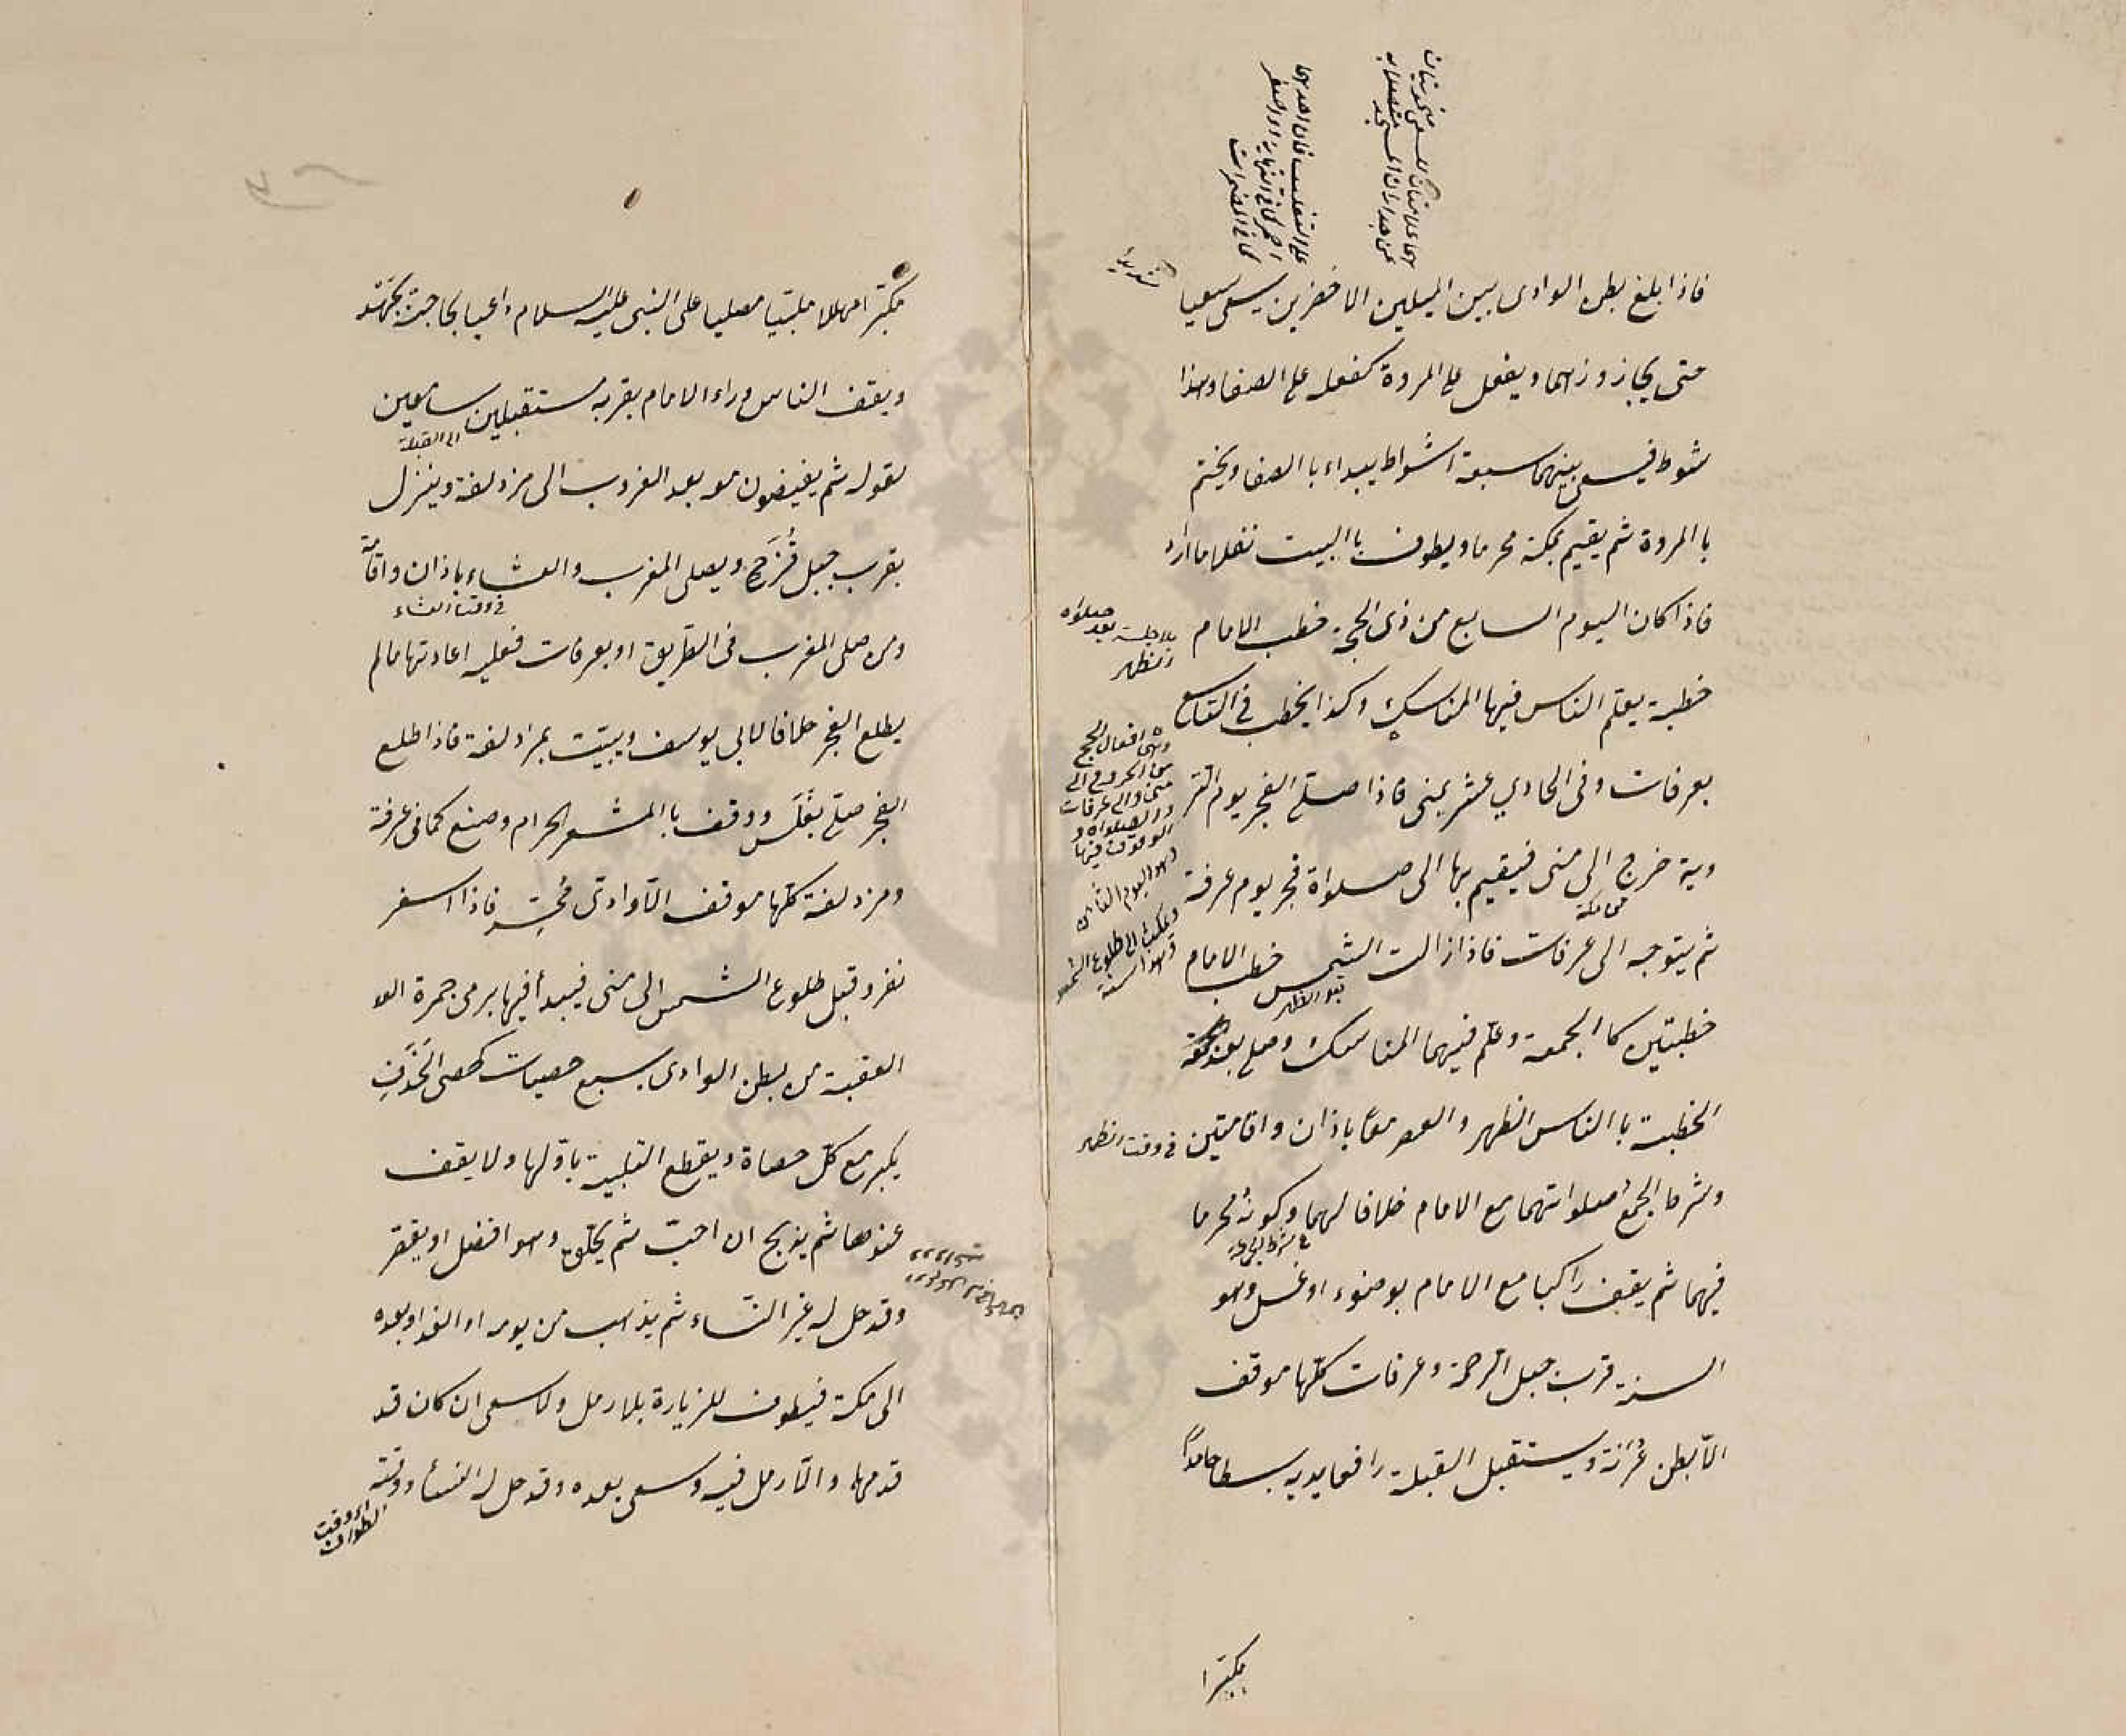 فاذا بلغ بطن الوادى بين الميلين الاخضرين سعى سعيا
شديدا
حتى يجاوزهما ويفعل على المروة كفعله على الصفا وهذا
شوط فيسعى بينهما سبعة اشواط يبداء باالصفا ويختم
باالمروة ثم يقيم بمكة محرما ويطوف باالبيت نفلا ما اراد
فاذا كان اليوم السابع من ذى الحجة خطب الامام
خطبة يعلم الناس فيها المناسك وكذا يخطب فى التاسع
بعرفات وفى الحادي عشر بمنى فاذا صلى الفجر يوم التر
وية خرج الى منى فيقيم بها الى صلواة فجر يوم عرفة
من مكة
ثم يتوجه الى عرفات فاذا زالت الشمس خطب الامام
خطبتين كا الجمعة وعلم فيهما المناسك وصلى بعد
الخطبة باالناس الظهر والعصر معًا باذان واقامتين فى وقت الظهر
وشرط الجمع صلواتهما مع الامام خلافا لهما وكونه محرما
فيهما ثم يقف راكبا مع الامام بوضوء او غسل وهو
السنة قرب جبل الرحمة وعرفات كلها موقف
الّا بطن عُرَنة ويستقبل القبلة رافعا يديه بسطا حامدًا
مكبّرا
بلا جلسة بعد صلواة
الظهر
وهى افعال الحج
من الخروج الى
منى والى عرفات
والصلواة و
الوقوف فيها
وهو اليوم الثامن
ويمكث الى طلوع الشمس
وهذا سنة
مكبّرا مهللا ملبّيا مصليا على النبى عليه السلام داعيا بحاجته بجهد
ويقف الناس وراء الامام بقربه مستقبلين سامعين
الى القبلة
لقوله ثم يفيضون معه بعد الغروب الى مزدلفة وينزل
بقرب جبل قُزَح ويصلى المغرب والعشاء باذان واقامة
فى وقت العشاء
ومن صلى المغرب فى الطريق او بعرفات فعليه اعادتها مالم
يطلع الفجر خلافا لابى يوسف ويبيّت بمزدلفة فاذا طلع
الفجر صلى بغَلَس ووقف باالمشعر الحرام وصنع كما فى عرفة
ومزدلفة كلها موقف الّا وادى مُحَسِّر فاذا اسفر
نفر وقبل طلوع الشمس الى منى فيبدأ فيها برمى جمرة العـ
العقبة من بطن الوادى بسبع حصيات كحصى الخَذَف
يكبر مع كلّ حصاة ويقطع التلبية باوّلها ولا يقف
عندها ثم يذبح ان احبّ ثم يحلق وهو افضل او يقصر
وقد حل له غير النّساء ثم يذهب من يومه او الغد او بعده
الى مكة فيطوف للزيارة بلا رمل ولا سعى ان كان قد
قدمها والّا رمل فيه وسعى بعده وقد حل له النساء ووقته
اى وقت
الطواف